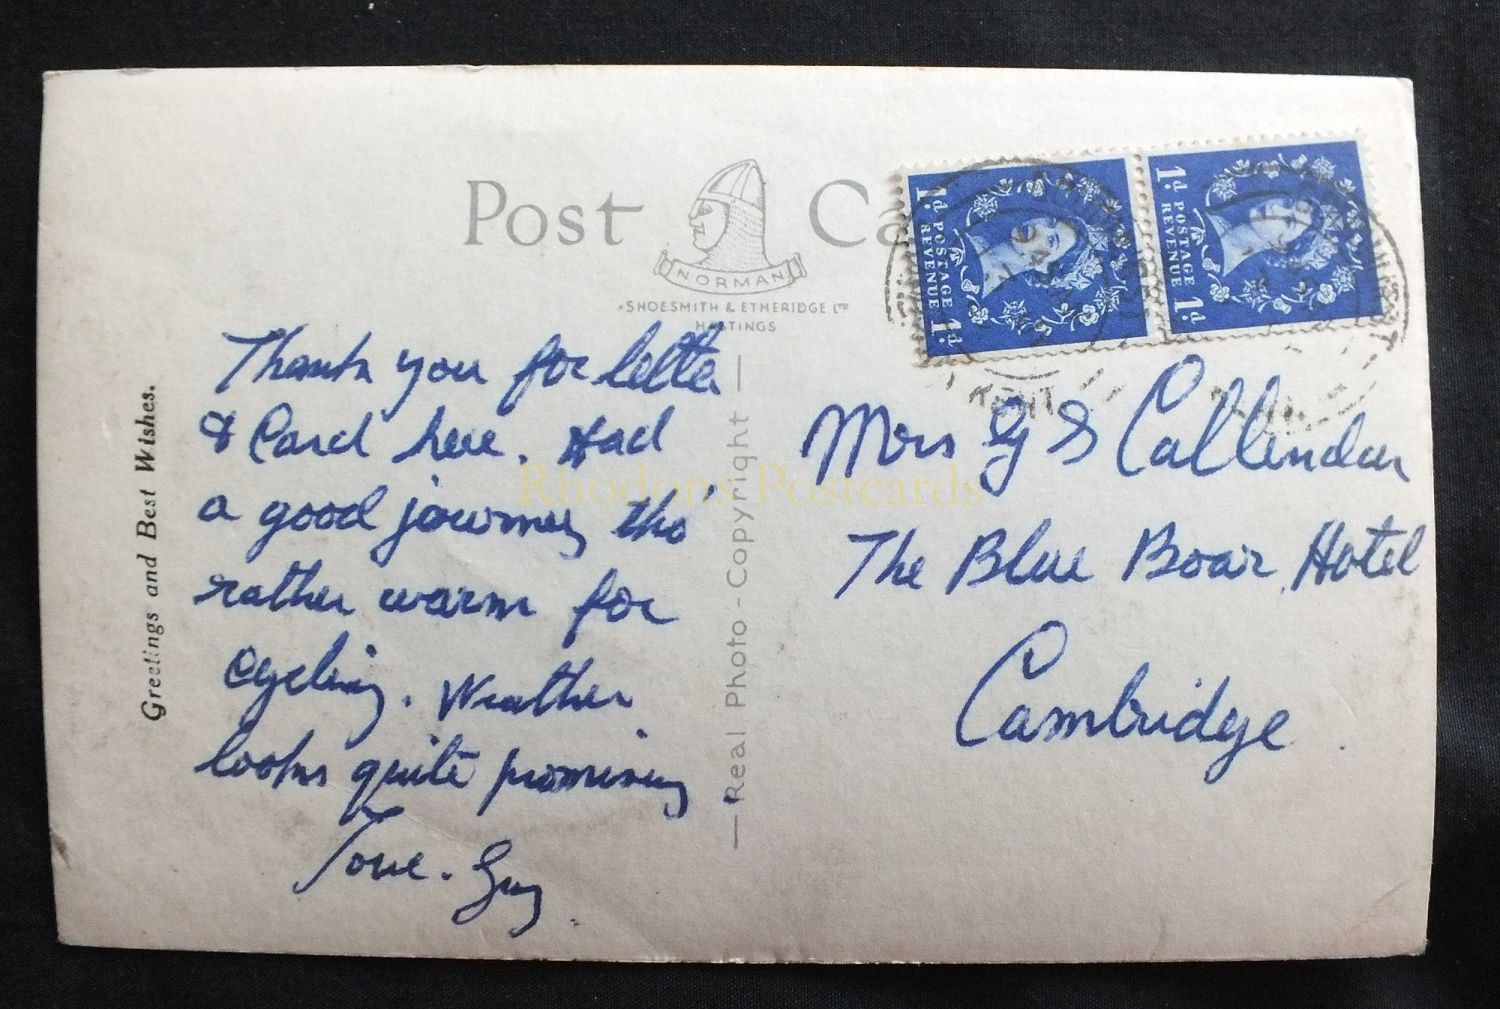 Post Ca
NORMAN
SHOESMITH & ETHERIDGE LTD
HASTINGS
1d. POSTAGE REVENUE 1d
1d. POSTAGE REVENUE 1d
KENT
Greetings and Best Wishes.
Thank you for letter
& Card here. Had
a good journey tho'
rather warm for
cycling. Weather
looks quite promising
Love. Guy.
Real Photo - Copyright
Mrs G S Callendar
The Blue Boar Hotel
Cambridge.
Rhodons Postcards